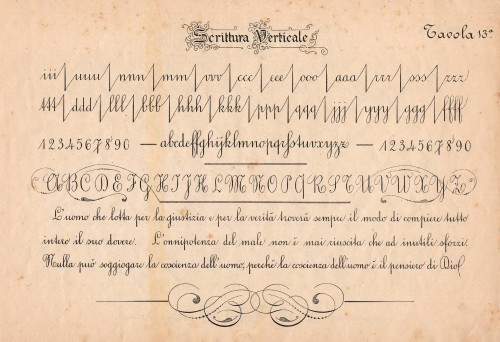 Scrittura Verticale
Tavola 13ª
iii uuu nnn mm vvv ccc eee ooo aaa rrr sss zzz
ttt ddd lll bbb hhh kkk ppp qqq jjj yyy ggg fff
1234567890 — abcdeffghijklmnopqrstuvxyzz — 1234567890
ABCDEFGHIJHLMNOPQRSTUVWXYZ
L'uomo che lotta per la giustizia e per la verità troverà sempre il modo di compiere tutto
intero il suo dovere. L'onnipotenza del male non è mai riuscita che ad inutili sforzi.
Nulla può soggiogare la coscienza dell'uomo, perchè la coscienza dell'uomo è il pensiero di Dio!